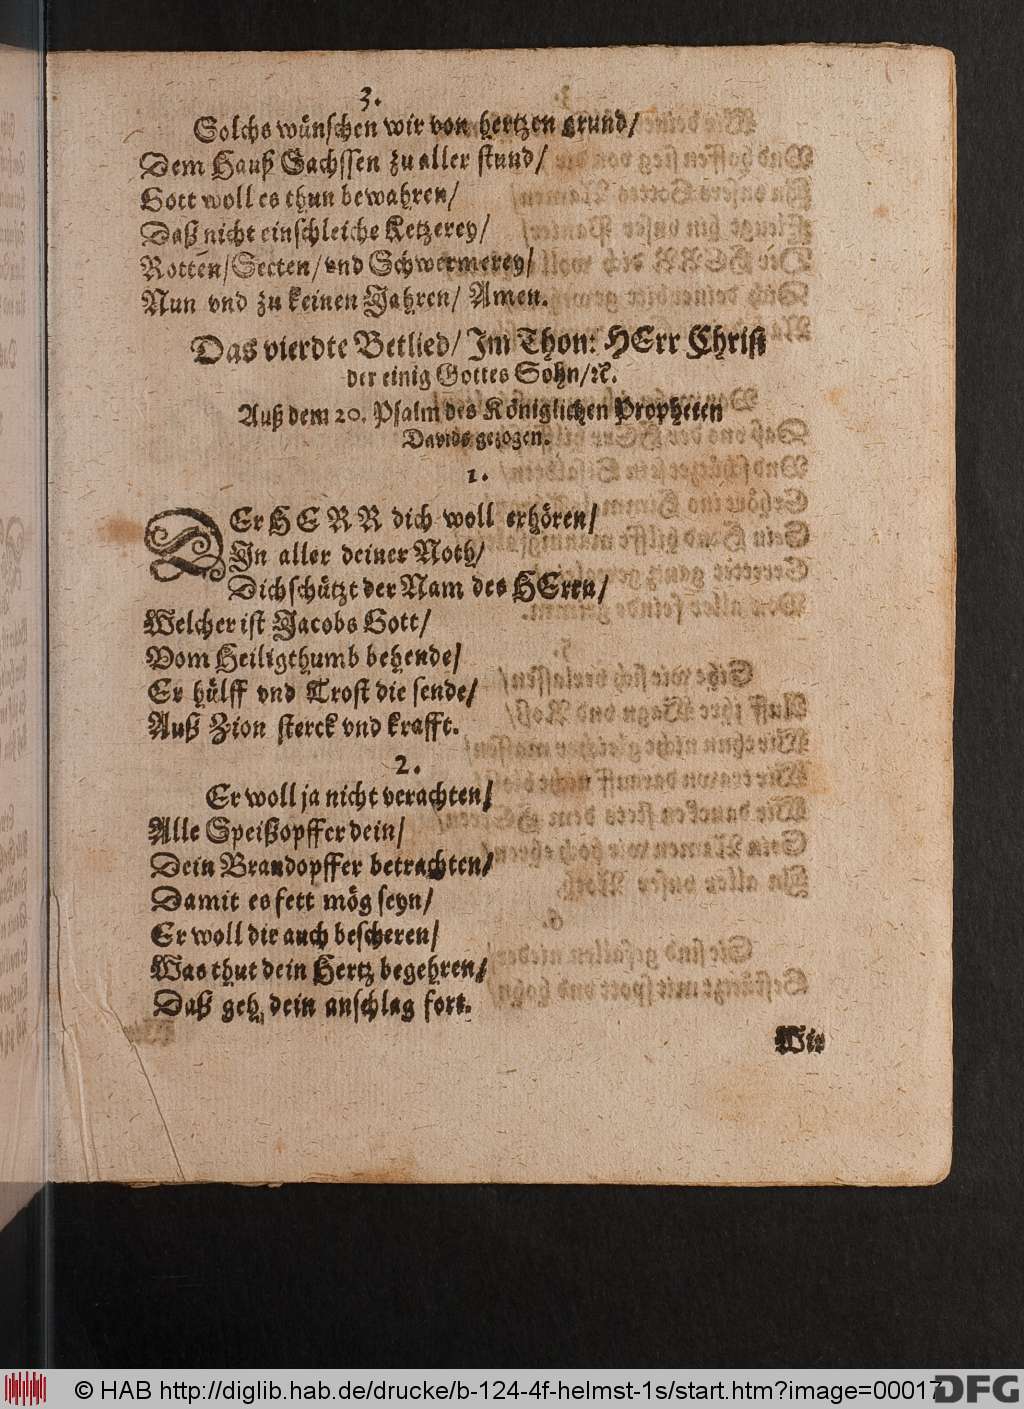 3.
Solchs wünschen wir von hertzen grund/
Dem Hauß Sachssen zu aller stund/
Gott woll es thun bewahren/
Daß nicht einschleiche Ketzerey/
Rotten/Secten/vnd Schwermerey/
Nun vnd zu keinen Jahren/ Amen.
Das vierdte Betlied/ Im Thon: HErr Christ
der einig Gottes Sohn/ꝛc.
Auß dem 20. Psalm des Königlichen Propheten
Davids gezogen.
1.
DEr HERR dich woll erhören/
In aller deiner Noth/
Dich schützt der Nam des HErrn/
Welcher ist Jacobs Gott/
Vom Heiligthumb behende/
Er hülff vnd Trost dir sende/
Auß Zion sterck vnd krafft.
2.
Er woll ja nicht verachten/
Alle Speißopffer dein/
Dein Brandopffer betrachten/
Damit es fett mög seyn/
Er woll dir auch bescheren/
Was thut dein Hertz begehren/
Daß geh dein anschlag fort.
Wir
© HAB http://diglib.hab.de/drucke/b-124-4f-helmst-1s/start.htm?image=00017
DFG